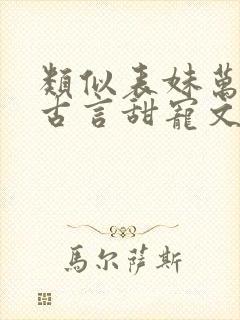 類似表妹萬
古言甜寵文
馬尔薩斯